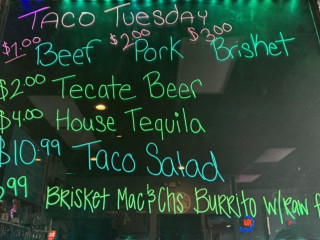 TACO TUESDAY
$1.00 Beef $2.00 Pork $3.00 Brisket
$2.00 Tecate Beer
$4.00 House Tequila
$10.99 Taco Salad
.99 BRISKET MAC&CHS BURRITO W/RAW